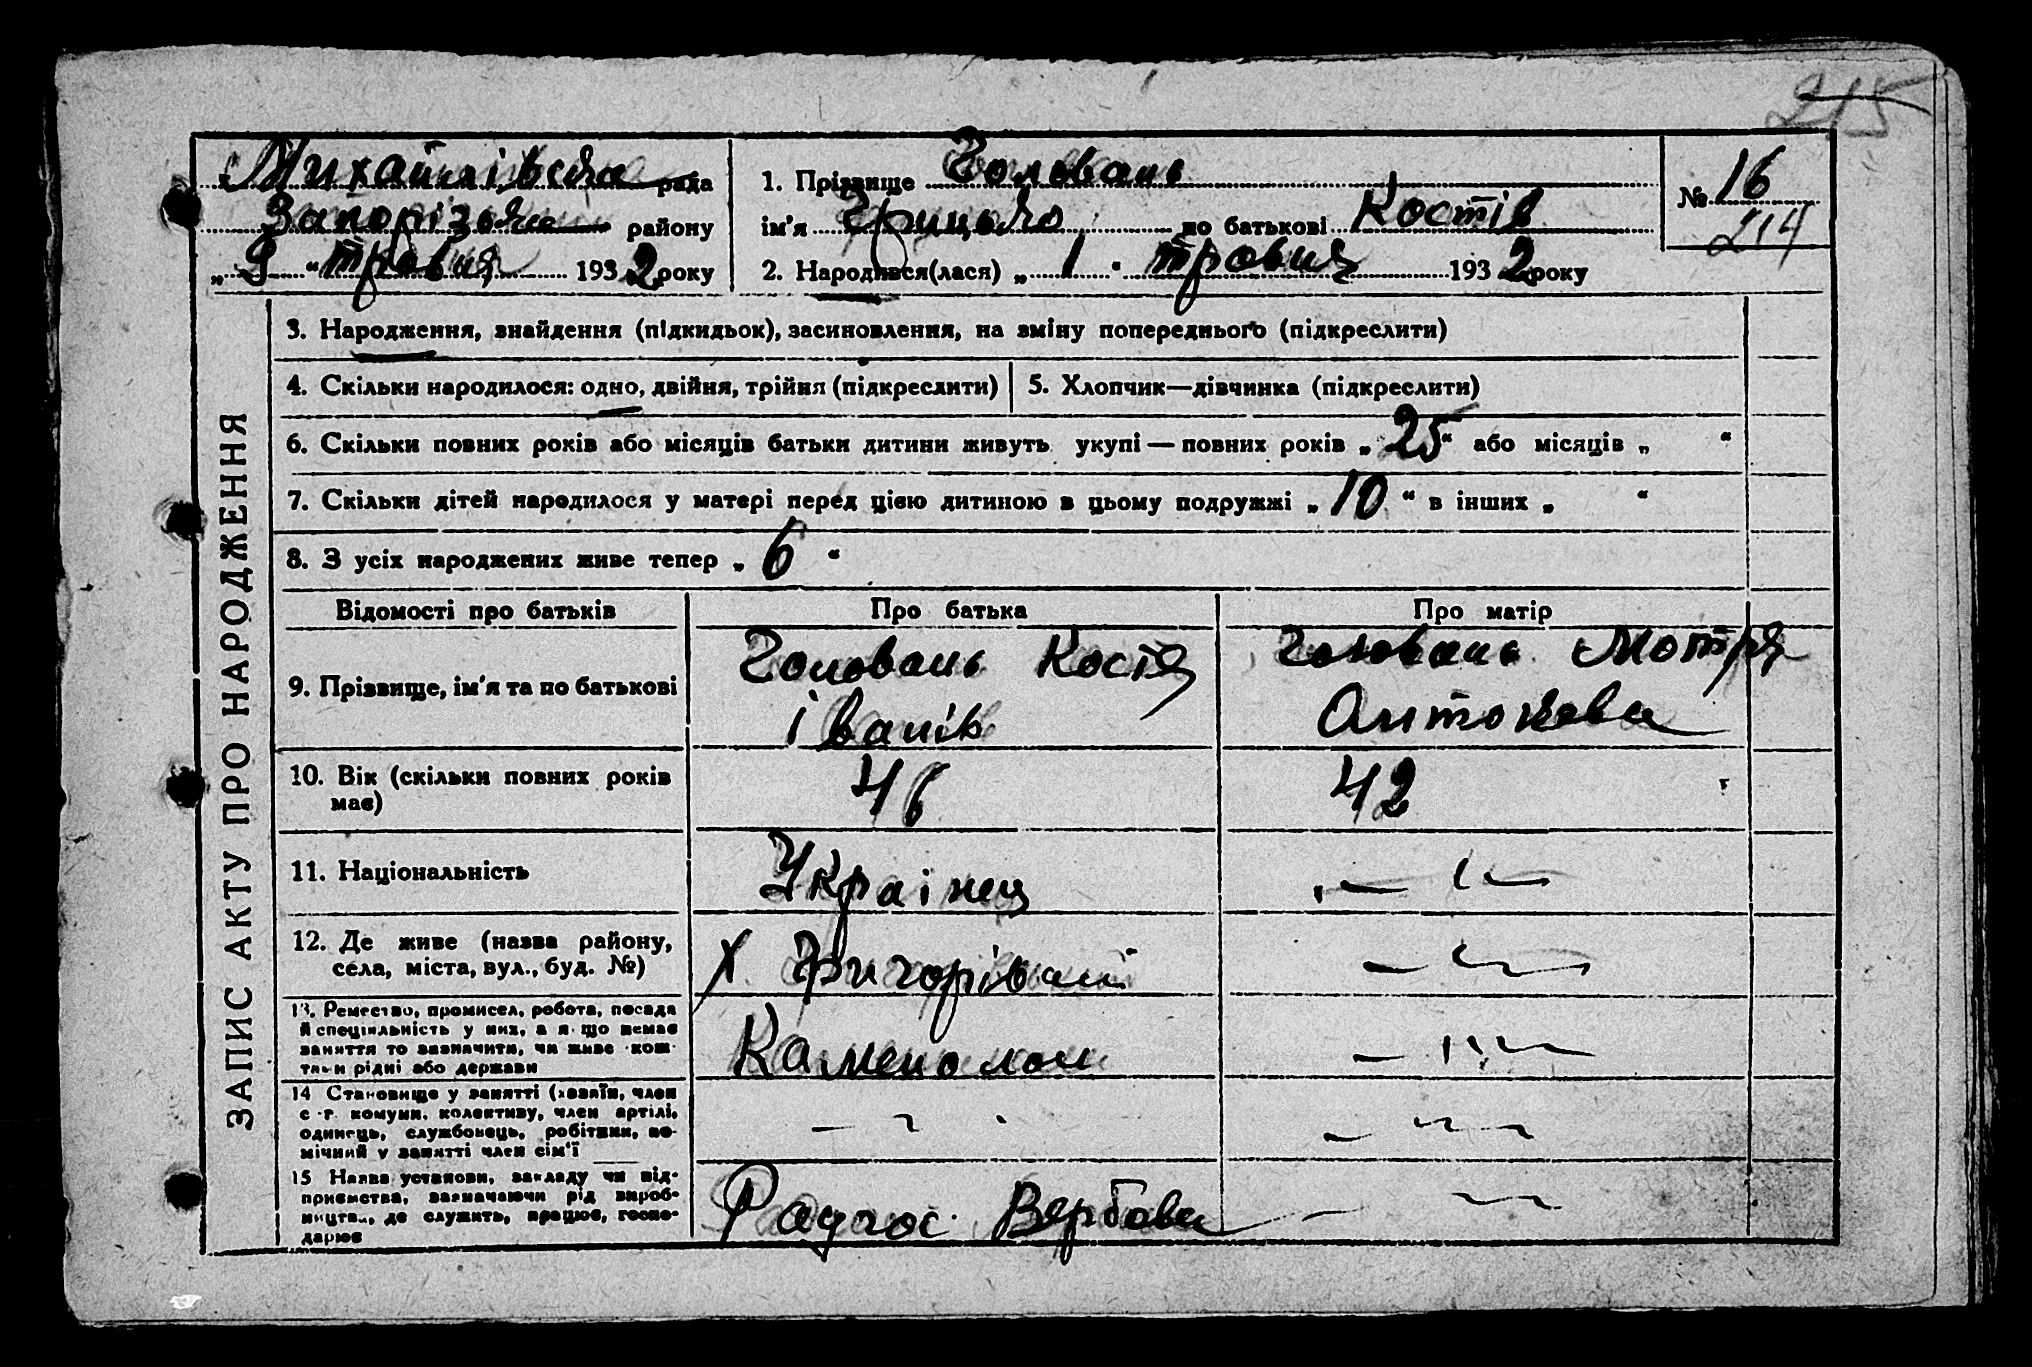 215
Михайлівська рада
Запорізька району
„ 9 “ травня 1932 року
1. Прізвище Головань
ім'я Грицько по батькові Костів
2. Народився(лася) „ 1 “ травня 1932 року
№ 16
214
ЗАПИС АКТУ ПРО НАРОДЖЕННЯ
3. Народження, знайдення (підкидьок), засиновлення, на зміну попереднього (підкреслити)
4. Скільки народилося: одно, двійня, трійня (підкреслити)
5. Хлопчик—дівчинка (підкреслити)
6. Скільки повних років або місяців батьки дитини живуть укупі — повних років „ 25 “ або місяців „ “
7. Скільки дітей народилося у матері перед цією дитиною в цьому подружжі „ 10 “ в інших „ “
8. З усіх народжених живе тепер „ 6 “
Відомості про батьків
Про батька
Про матір
9. Прізвище, ім'я та по батькові
Головань Костя
Іванів
Головань Мотря
Антонова
10. Вік (скільки повних років
має)
46
42
11. Національність
Украінец
12. Де живе (назва району,
села, міста, вул., буд. №)
Х Григорівш
13. Ремество, промисел, робота, посада
й спеціяльність у них, а якщо немає
заняття то зазначити, чи живе кош-
тами рідні або держави
Каменолом
14 Становище у занятті (хазяїн, член
с.-г. комуни, колективу, член артілі,
одинець, службовець, робітник, по-
мічний у занятті член сім'ї
15 Назва установи, закладу чи під-
приємства, зазначаючи рід вироб-
ництва, де служить, працює, госпо-
дарює
Радгос Вербова